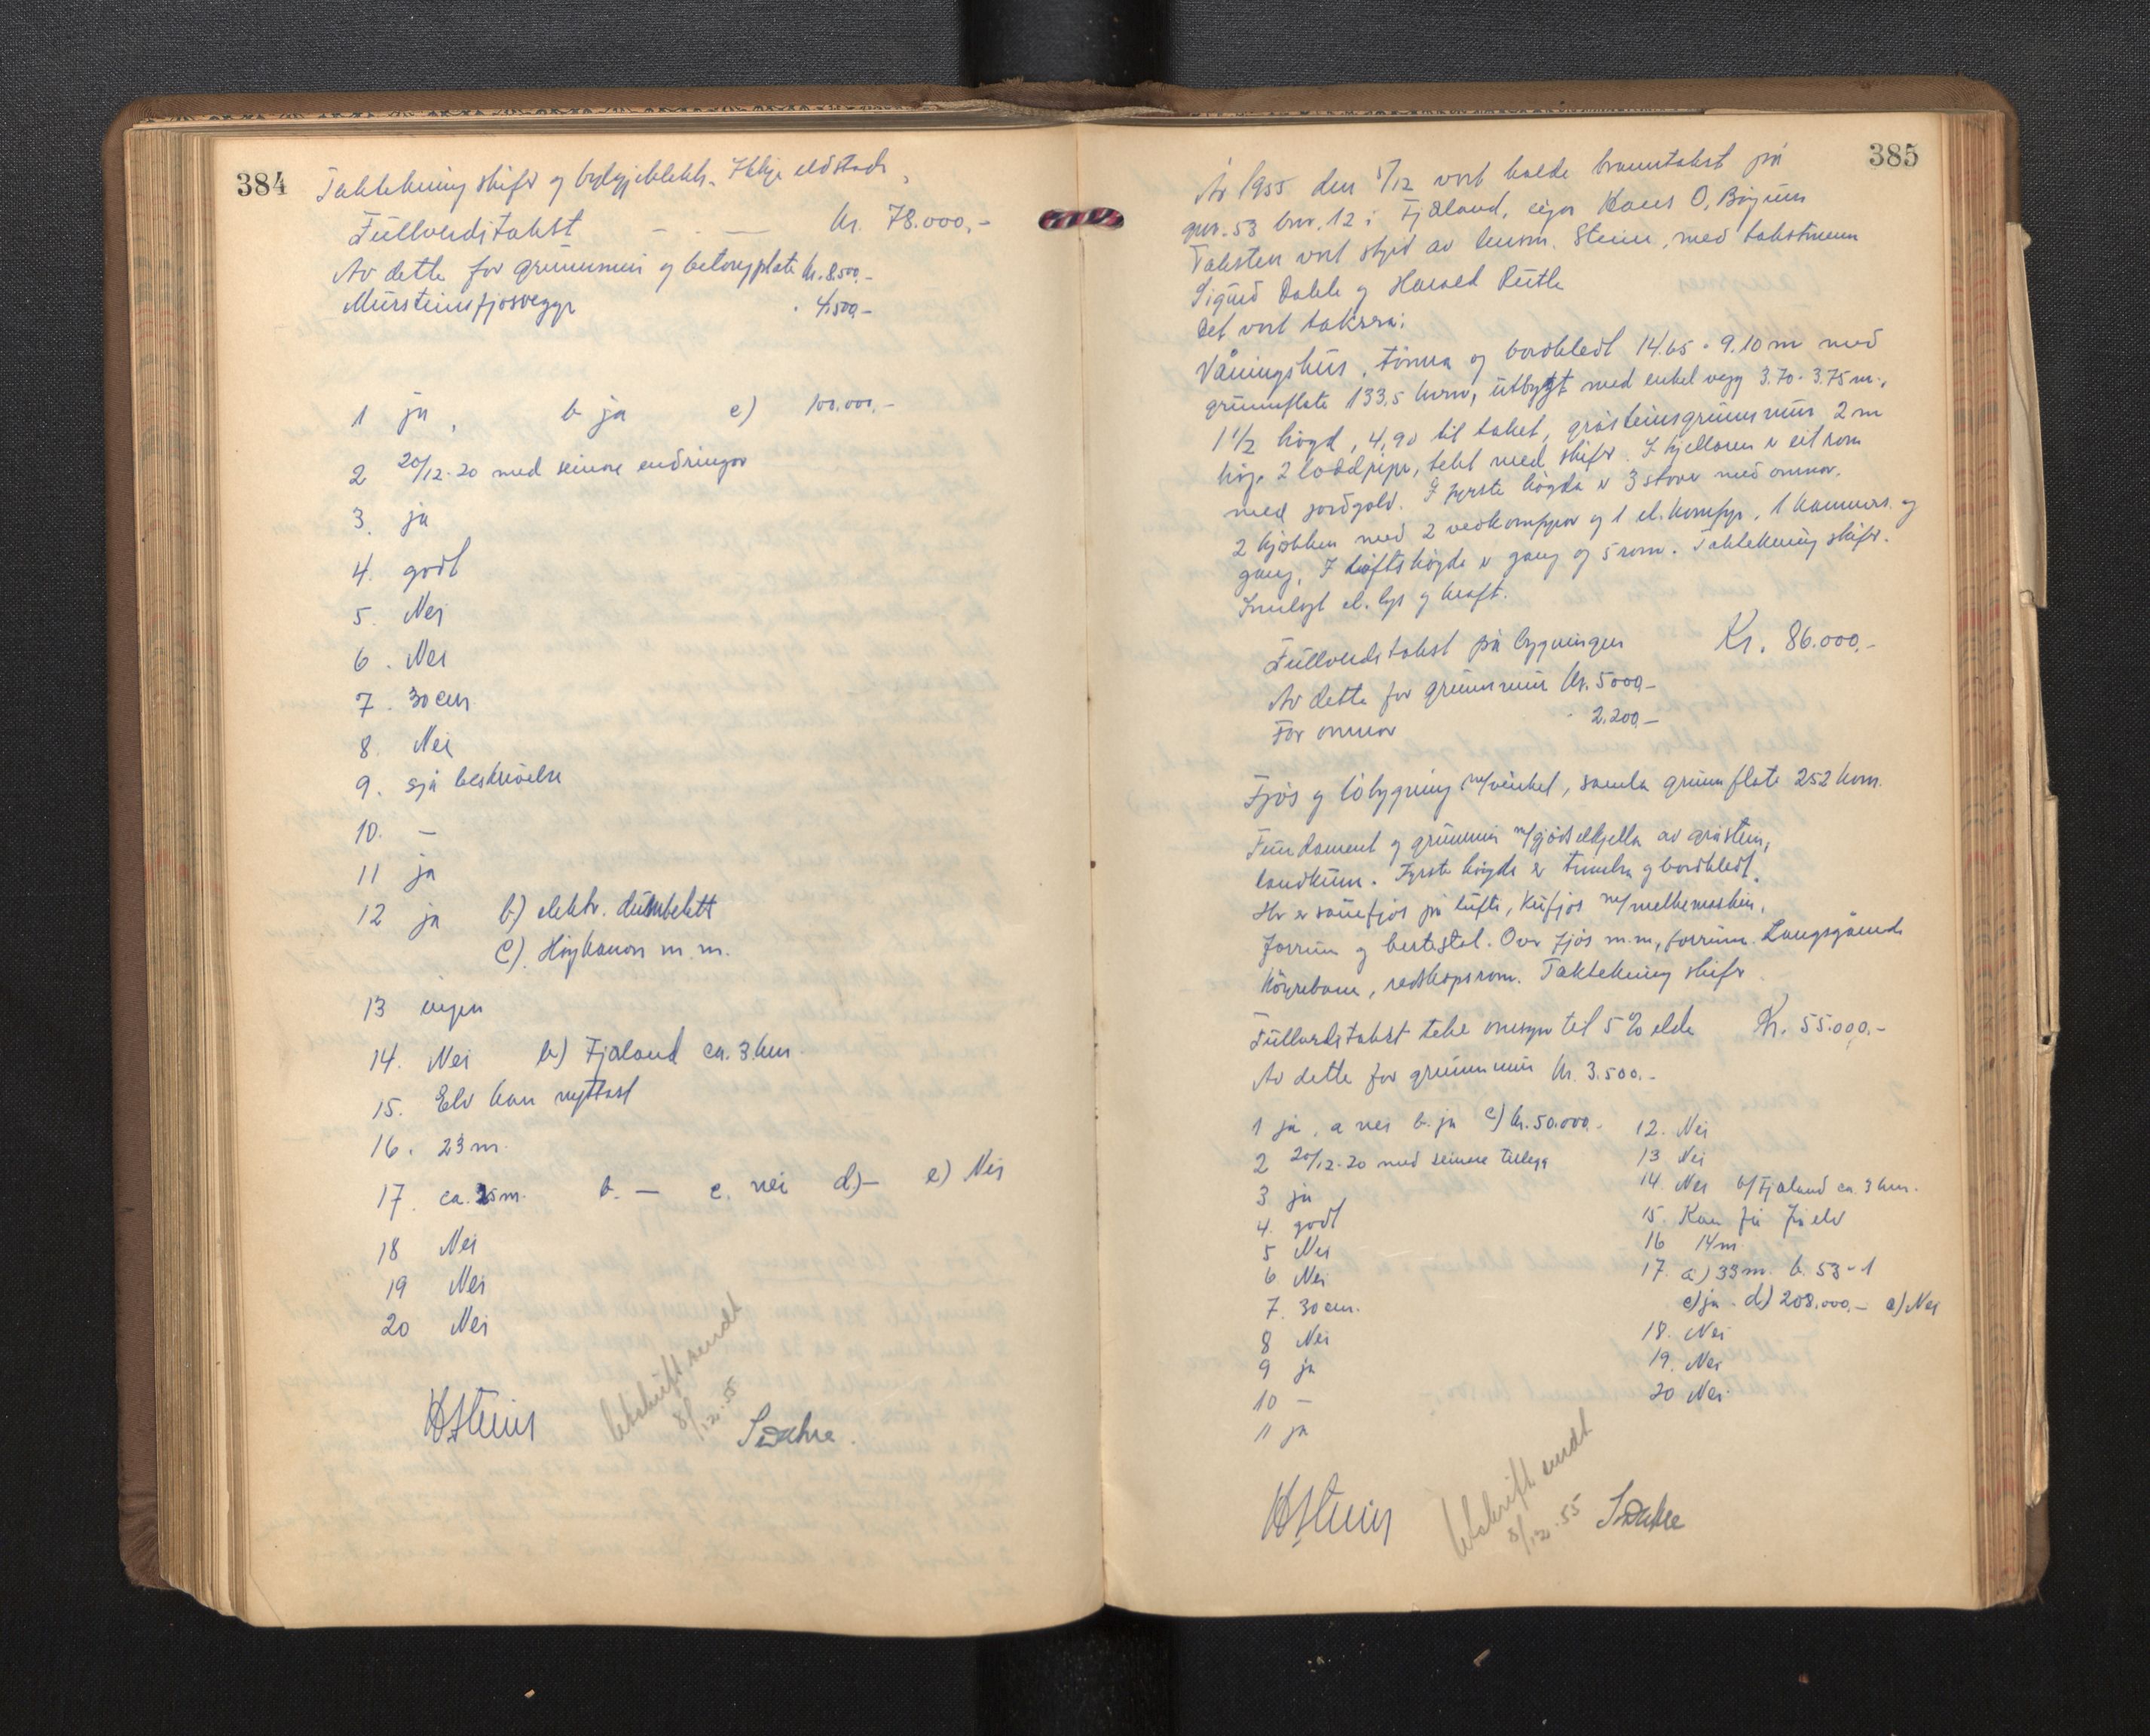 384
Taktekning skifer og bylgjeblekk. Ikkje eldstade.
Fullverditakst — . — kr. 78.000,-
Av dette for grunnmur og betongplate kr. 8500,-
Mursteinsfjosvegger . 4500,-
1 ja, b ja c) 100.000,-
2 20/12-20 med seinare endringar
3. ja
4. godt
5. Nei
6. Nei
7. 30 cm
8. Nei
9. sjå beskrivelse
10. —
11 ja
12 ja b) elektr.
C). Høykanon m.m.
13 ingen
14. Nei b) Fjærland ca. 3 km.
15. Elv kan nyttast
16. 23 m.
17. ca. 25 m. b. — c. nei d) — e) Nei
18 Nei
19 Nei
20 Nei
HStein
Utskrift sendt
8/12.55
SDahle.
385
År 1955 den 5/12 vart halde branntakst på
gnr. 53 bnr. 12 i Fjærland, eigar Hans O. Bøyum
Taksten vart styrd av lensm. Stein, med takstmenn
Sigurd Dahle og Harald Rutle
Det vart taksera:
Våningshus, tømra og bordkledt 14.65 · 9.10 m med
grunnflate 133,5 kvm, utbygt med enkel vegg 3.70 · 3.75 m.,
1 1/2 høgd, 4,90 til taket, gråsteinsgrunnmur 2 m
høg. 2 loddpiper, tekt med skifer. I kjellaren er eit rom
med jordgolv. I fyrste høgda er 3 stover med omnar,
2 kjøkken med 2 vedkomfyrar og 1 el. komfyr, 1 kammers og
gang. I loftshøgda er gang og 5 rom. Taktekning skifer.
Innlagt el. lys og kraft.
Fullverditakst på bygningen Kr. 86.000,-
Av dette for grunnmur kr. 5000,-
For omnar - 2.200,-
Fjøs og løbygning m/vinkel, samla grunnflate 252 kvm.
Fundament og grunnmur m/gjødselkjellar av gråstein,
landkum. Fyrste høgda er timbra og bordkledt.
Her er sauefjøs på lufts, kufjøs m/melkemaskin,
forrum og hestestal. Over fjøs m.m., forrum. Langsgåande
køyrebane, redskapsrom. Taktekning skifer
Fullverditakst teke omsyn til 5% elde Kr. 55.000,-
Av dette for grunnmur kr. 3.500.-
1 ja, a nei b. ja c) kr. 50.000.-
2 20/12-20 med seinare tillegg
3 ja
4. godt
5 Nei
6 Nei
7. 30 cm.
8 Nei
9 ja
10 —
11 ja
12. Nei
13 Nei
14. Nei b/ Fjærland ca. 3 km.
15. Kan få frå elv
16 14 m
17. a) 33 m. b. 53-1
c) ja. d) 208.000,- e) Nei
18. Nei
19. Nei
20 Nei.
HStein
Utskrift sendt
8/12.55
SDahle